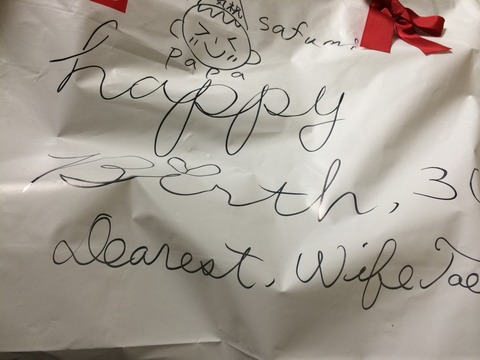 safumi
papa
happy
Birth, 30
Dearest, Wife Tae